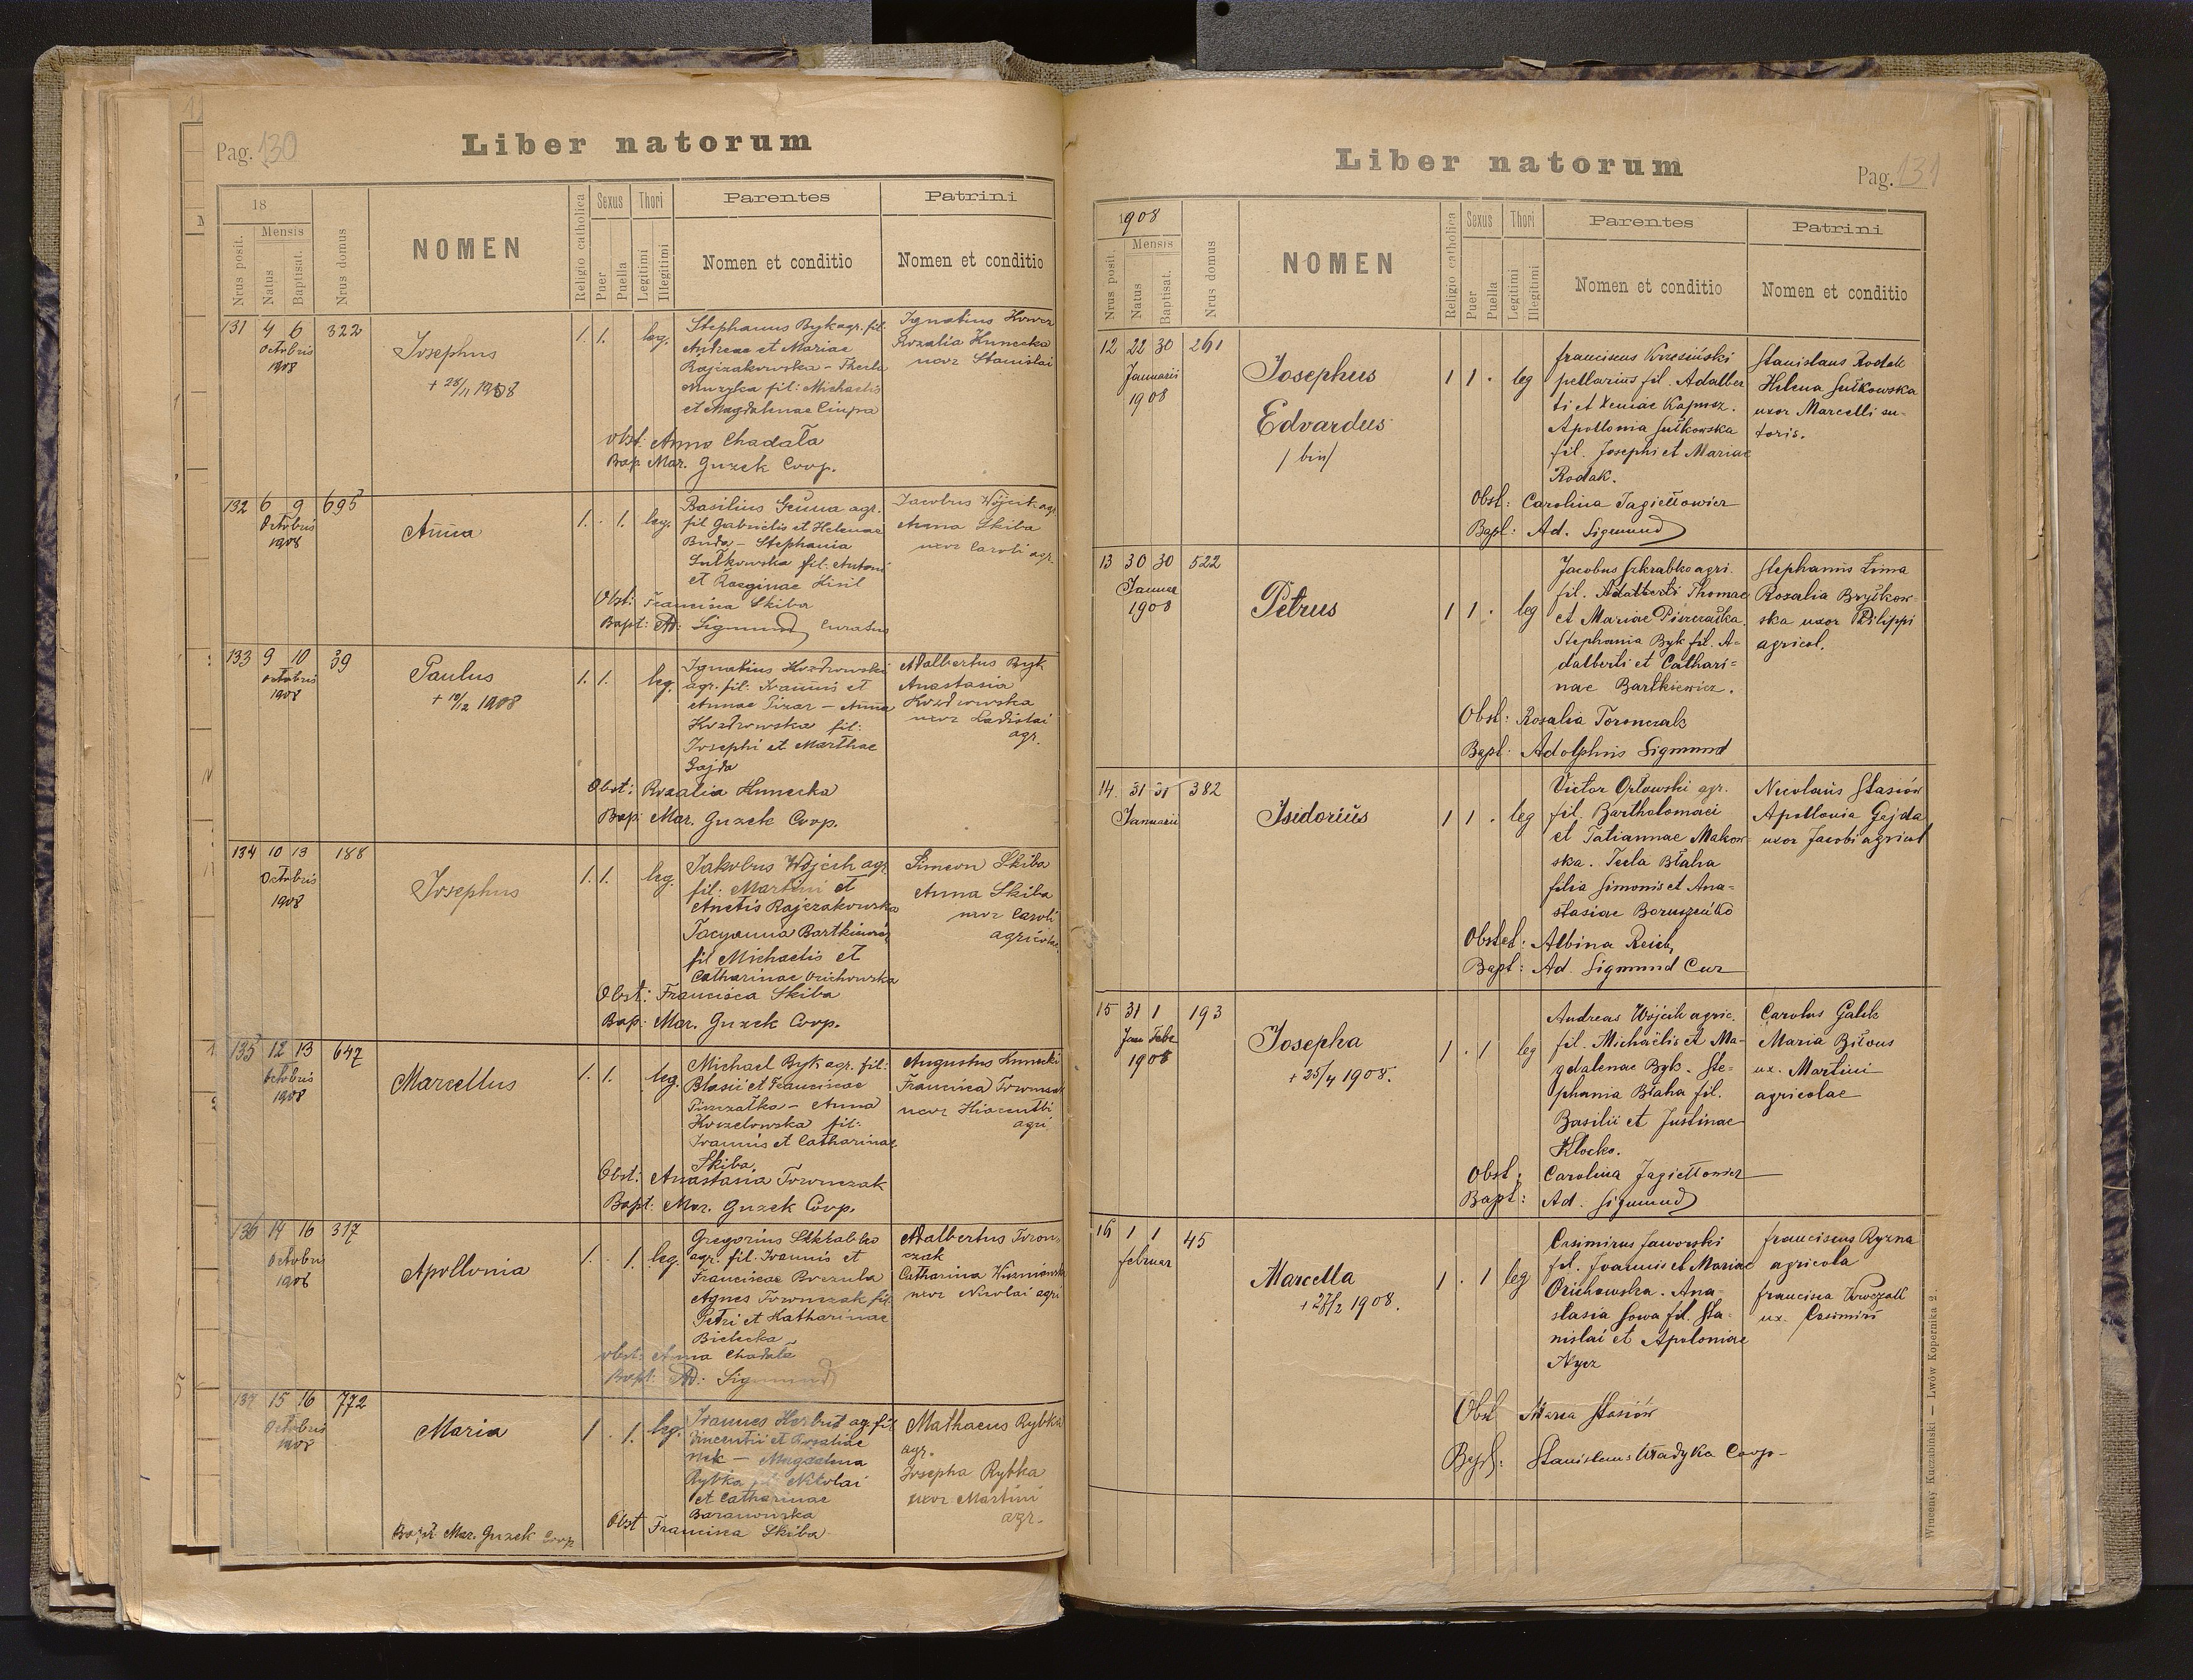 Pag. 130
Liber natorum
18
Mensis
Nrus posit.
Natus
Baptisat.
Nrus domus
NOMEN
Religio catholica
Sexus
Puer
Puella
Thori
Legitimi
Illegitimi
Parentes
Nomen et conditio
Patrini
Nomen et conditio
131 4 6 322
Octobris
1908
Josephus
+ 28/11 1908
1. 1. leg.
Stephanus Byk agr. fil.
Andreae et Mariae
Rajczakowska - Thecla
Muzyka fil: Michaelis
et Magdalenae Ciupra
Ignatius
Rozalia Kunecka
uxor Stanislai
obst: Anna Chadała
Bap. Mar. Guzek Coop.
132 6 9 695
Octobris
1908
Anna
1. . 1. leg.
Basilius agr.
fil Gabrielis et Helenae
Buda - Stephania
Sułkowska fil. Antoni
et Reginae Kisil
Jacobus Wójcik agr.
Anna Skiba
uxor Caroli agr.
Obst: Francisca Skiba
Bapt: Ad: Sigmund Curatus
133 9 10 39
octobris
1908
Paulus
+ 10/12 1908
1. 1. leg.
Ignatius
agr. fil: Ioannis et
Annae Pizar - Anna
fil:
Josephi et Marthae
Gajda
Adalbertus Byk
Anastasia
uxor Ladislai
agr.
Obst: Rozalia Kunecka
Bap: Mar. Guzek Coop.
134 10 13 188
Octobris
1908
Josephus
1. 1. leg.
Jakobus Wójcik agr
fil: Martini et
Anetis Rajczakowska
Tacyanna Bartkiewicz
fil Michaelis et
Catharinae Orichowska
Simeon Skiba
Anna Skiba
uxor Caroli
agricolae
Obst: Francisca Skiba
Bap: Mar. Guzek Coop.
135 12 13 647
Octobris
1908
Marcellus
1. 1. leg.
Michael Byk agr. fil:
Blasii et Franciscae
Piszczałka - Anna
fil:
Ioannis et Catharinae
Skiba
Augustus Kunecki
Francisca Toronczak
uxor Hiacenthi
agri
Obst: Anastasia Toronczak
Bapt: Mar. Guzek Coop.
136 14 16 317
Octobris
1908
Apollonia
1. . 1. leg.
Gregorius Szkrabko
agr. fil. Ioannis et
Franciscae
Agnes Toronczak fil.
Petri et Katharinae
Bielecka
Adalbertus Toron-
czak
Catharina Wiszniowska
uxor Nicolai agri
obst: Anna Chadała
Bapt: Ad: Sigmund
137 15 16 772
Octobris
1908
Maria
1 . 1. leg.
Ioannes Herbut agr fil
Vincentii et Rozaliae
- Magdalena
Rybka fil Nikolai
et Catharinae
Baranowska
Mathaeus Rybka
agr.
Josepha Rybka
uxor Martini
agr.
Obst Francisca Skiba
Bapt. Mar. Guzek Coop
Liber natorum
Pag. 131
1908
Mensis
Nrus posit.
Natus
Baptisat.
Nrus domus
NOMEN
Religio catholica
Sexus
Puer
Puella
Thori
Legitimi
Illegitimi
Parentes
Nomen et conditio
Patrini
Nomen et conditio
12 22 30 261
Januarii
1908
Josephus
Edvardus
/ bin/
1 1 . leg
franciscus Brzeziński
pellarius fil. Adalber
ti et Xeniae Kapusz.
Apollonia Sułkowska
fil. Josephi et Mariae
Rodak.
Stanislaus Rodak
Helena Sułkowska
uxor Marcelli su-
toris.
Obst: Carolina Jagiełłowicz
Bapt: Ad. Sigmund
13 30 30 522
Januar
1908
Petrus
1 1 . leg
Jacobus Szkrabko agri.
fil. Adalberti Thomae
et Mariae Piszczałka.
Stephania Byk fil. A-
dalberti et Cathari=
nae Bartkiewicz.
Stephanus Zima
Rozalia Bryłkow
ska uxor Philippi
agricol.
Obst: Rosalia Toronczak
Bapt: Adolphus Sigmund
14. 31 31 382
Januarii
Isidorius
1 1 . leg
Victor Orłowski agr.
fil. Bartholomaei
et Tatiannae Makow
ska. Tecla Błaha
filia Simonis et Ana=
stasiae Boruszeńko
Nicolaus Stasiów
Apollonia Gajda
uxor Jacobi agricol
Obstet: Albina Reich
Bapt: Ad. Sigmund Cur
15 31 1 193
Jan Febr
1908
Josepha
+ 25/4 1908.
1 . 1 leg
Andreas Wójcik agric.
fil. Michaelis et Ma-
gdalenae Byk. Ste-
phania Błaha fil.
Basilii et Justinae
Klocko.
Carolus Galik
Maria Biłous
ux. Martini
agricolae
Obst: Carolina Jagiełłowicz
Bapt: Ad. Sigmund
16 1 1 45
februar
Marcella
+ 27/2 1908.
1 . 1 leg
Casimirus Jaworski
fil. Joannis et Mariae
Orichowska. Ana-
stasia Sowa fil. Sta-
nislai et Apoloniae
Nycz
franciscus Ryzna
agricola
francisca
ux. Casimiri
Obst Maria Stasiów
Bapt: Stanislaus Władyka Coop-
Wincenty Kuczabiński — Lwów Kopernika 2.